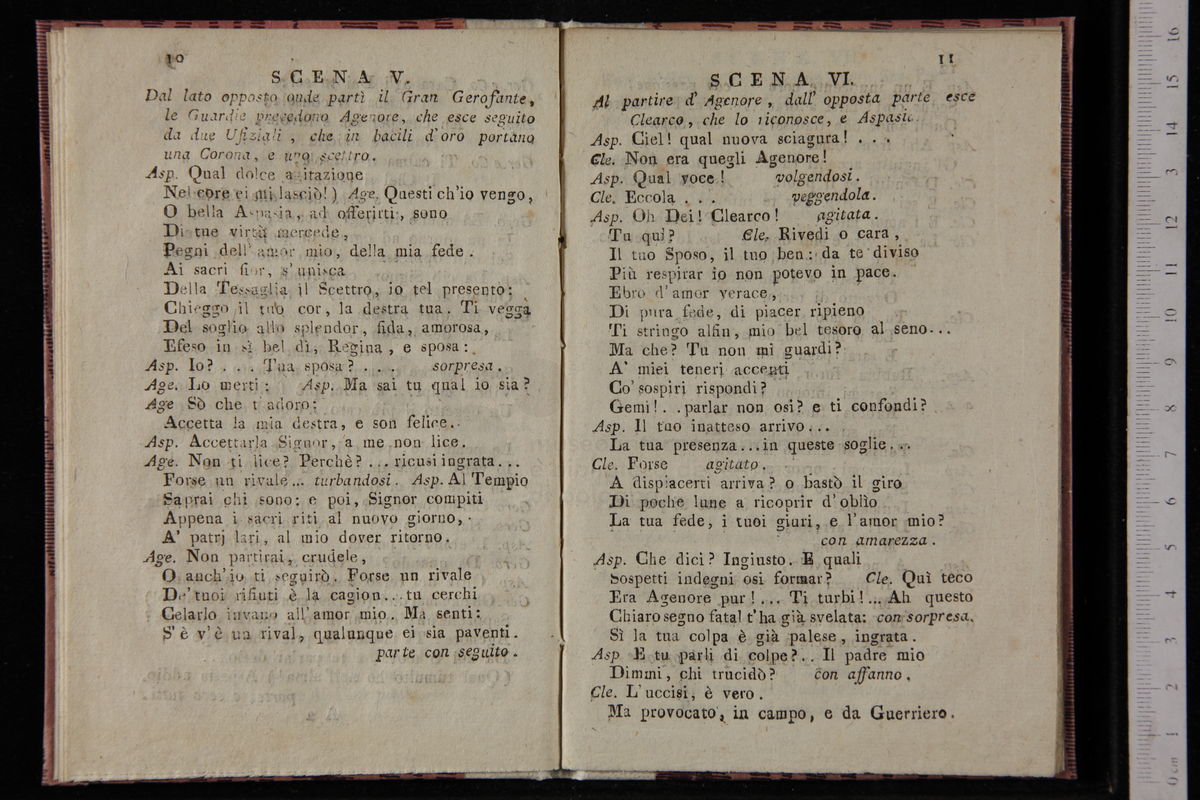 10
SCENA V.
Dal lato opposto onde partì il Gran Gerofante,
le Guardie precedono Agenore, che esce seguito
da due Ufiziali, che in bacili d'oro portano
una Corona, e uno scettro.
Asp. Qual dolce agitazione
Nel core ei mi lasciò!) Age. Questi ch'io vengo,
O bella Aspasia, ad offerirti, sono
Di tue virtù mercede,
Pegni dell'amor mio, della mia fede.
Ai sacri fior, s'unisca
Della Tessaglia il Scettro, io tel presento:
Chieggo il tuo cor, la destra tua. Ti vegga
Del soglio allo splendor, fida, amorosa,
Efeso in sì bel dì, Regina, e sposa:
Asp. Io? . . . Tua sposa? . . . sorpresa.
Age. Lo merti: Asp. Ma sai tu qual io sia?
Age Sò che t'adoro:
Accetta la mia destra, e son felice.
Asp. Accettarla Signor, a me non lice.
Age. Non ti lice? Perchè? ... ricusi ingrata...
Forse un rivale... turbandosi. Asp. Al Tempio
Saprai chi sono: e poi, Signor compiti
Appena i sacri riti al nuovo giorno,
A' patrj lari, al mio dover ritorno.
Age. Non partirai, crudele,
O anch'io ti seguirò. Forse un rivale
De' tuoi rifiuti è la cagion...tu cerchi
Celarlo invano all'amor mio. Ma senti:
S'è v'è un rival, qualunque ei sia paventi.
parte con seguito.
11
SCENA VI.
Al partire d'Agenore, dall'opposta parte esce
Clearco, che lo riconosce, e Aspasia.
Asp. Ciel! qual nuova sciagura! . . .
Cle. Non era quegli Agenore!
Asp. Qual voce! volgendosi.
Cle. Eccola . . . veggendola.
Asp. Oh Dei! Clearco! agitata.
Tu quì? Cle. Rivedi o cara,
Il tuo Sposo, il tuo ben: da te diviso
Più respirar io non potevo in pace.
Ebro d'amor verace,
Di pura fede, di piacer ripieno
Ti stringo alfin, mio bel tesoro al seno...
Ma che? Tu non mi guardi?
A' miei teneri accenti
Co' sospiri rispondi?
Gemi!. .parlar non osi? e ti confondi?
Asp. Il tuo inatteso arrivo...
La tua presenza...in queste soglie...
Cle. Forse agitato.
A dispiacerti arriva? o bastò il giro
Di poche lune a ricoprir d'oblìo
La tua fede, i tuoi giuri, e l'amor mio?
con amarezza.
Asp. Che dici? Ingiusto. E quali
Sospetti indegni osi formar? Cle. Quì teco
Era Agenore pur!... Ti turbi!... Ah questo
Chiaro segno fatal t'ha già svelata: con sorpresa.
Sì la tua colpa è già palese, ingrata.
Asp E tu parli di colpe?.. Il padre mio
Dimmi, chi trucidò? con affanno.
Cle. L'uccisi, è vero.
Ma provocato, in campo, e da Guerriero.
0 cm 1 2 3 4 5 6 7 8 9 10 11 12 13 14 15 16